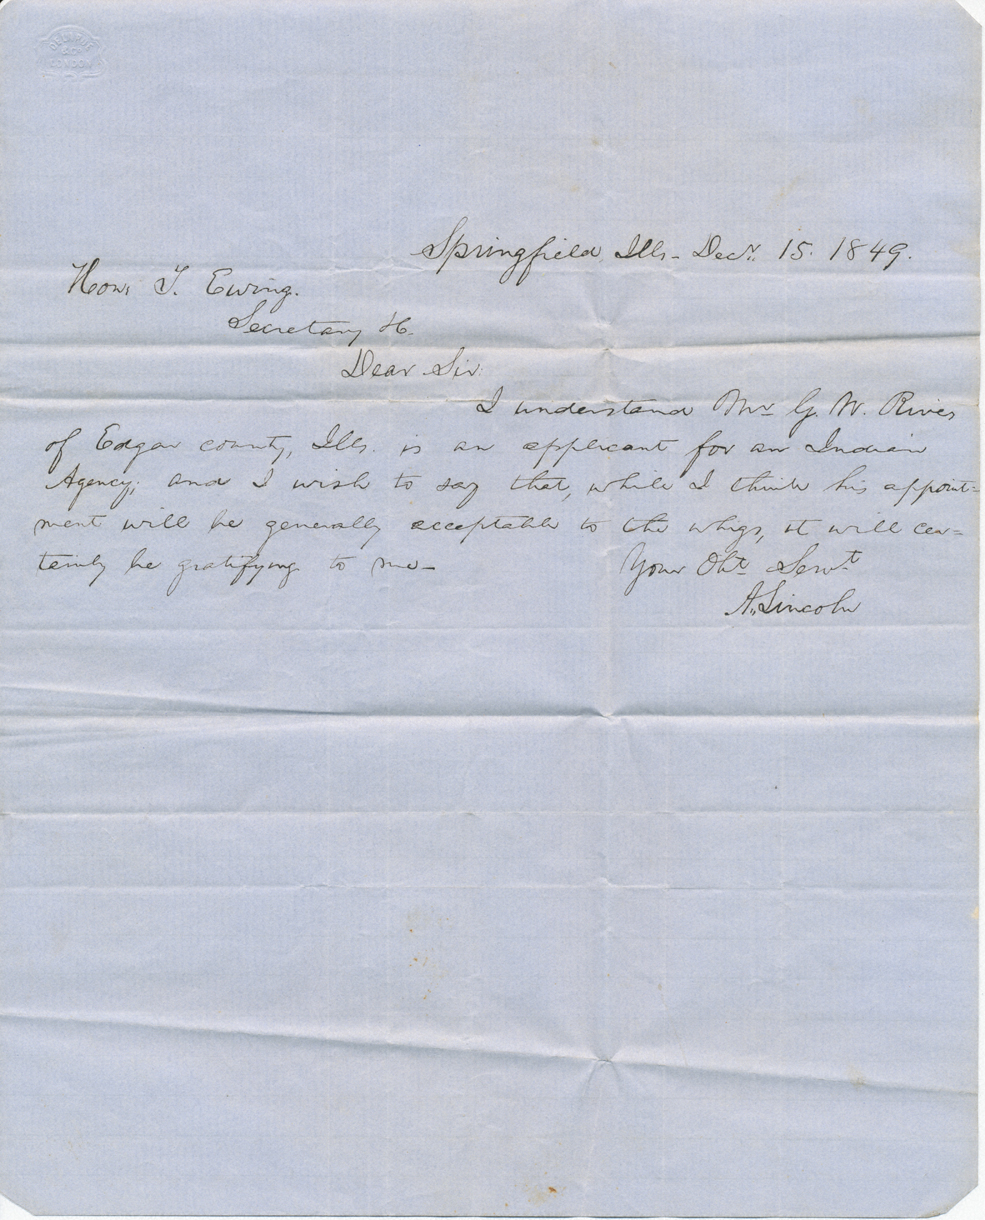 DE LA RUE
& Co
LONDON
Springfield, Ills. Decr. 15. 1849.
Hon: T. Ewing.
Secretary &c.
Dear Sir:
I understand Mr G. W. Rives
of Edgar county, Ills. is an applicant for an Indian
Agency; and I wish to say that, while I think his appoint-
ment will be generally acceptable to the whigs, it will cer-
tainly be gratifying to me-
Your Obt. Servt.
A. Lincoln